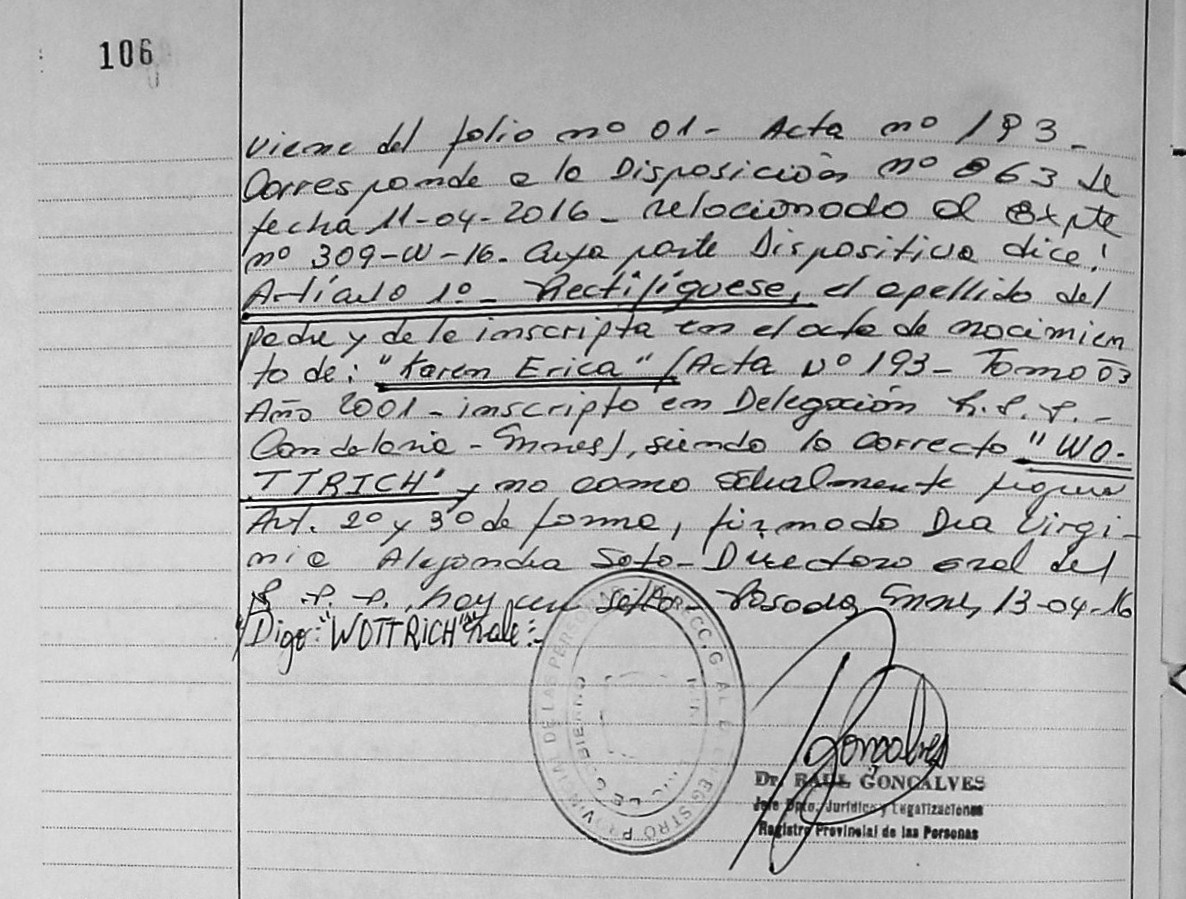 106
viene del folio nº 01- Acta nº 193-
Corresponde a la Disposición nº 863 de
fecha 11-04-2016- relacionado al Expte
nº 309-W-16. Cuya parte Dispositiva dice:
Artículo 1º- Rectifíquese, el apellido del
padre y de la inscripta en el acta de nacimien
to de: "Karen Erica" (Acta Nº 193- Tomo 03
Año 2001- inscripto en Delegación R.P.P.-
Candelaria- Mnes), siendo lo correcto "WO-
TTRICH" y no como actualmente figura
Art. 2º y 3º de forma, firmado Dra Virgi-
nia Alejandra Soto- Directora Gral del
R.P.P. hay un sello- Posadas, Mnes, 13-04-16
Digo: "WOTTRICH" Vale:-
REGISTRO PROVINCIAL DE LAS PERSONAS
Goncalves
Dr. RAUL GONCALVES
Jefe Dpto. Jurídico y Legalizaciones
Registro Provincial de las Personas